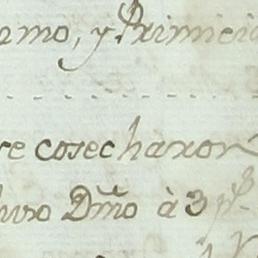 zmo, y Primicia
se cosecharon
huvo Dmõ à 3 p.s